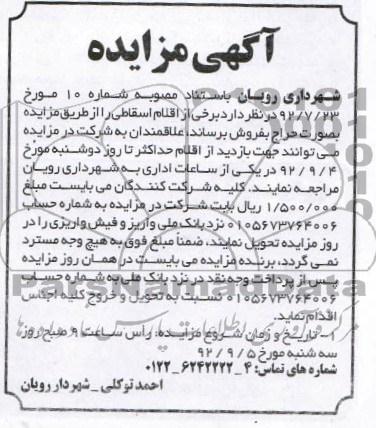 آگهی مزایده
شهرداری رویان باستناد مصوبه شماره ۱۰ مورخ
۹۲/۷/۲۳ در نظر دارد برخی از اقلام اسقاطی را از طریق مزایده
بصورت حراج بفروش برساند، علاقمندان به شرکت در مزایده
می توانند جهت بازدید از اقلام حداکثر تا روز دوشنبه مورخ
۹۲/۹/۴ در یکی از ساعات اداری به شهرداری رویان
مراجعه نمایند. کلیه شرکت کنندگان می بایست مبلغ
۱/۵۰۰/۰۰۰ ریال بابت شرکت در مزایده به شماره حساب
۰۱۰۵۶۷۳۷۶۴۰۰۶ نزد بانک ملی واریز و فیش واریزی را در
روز مزایده تحویل نمایند، ضمناً مبلغ فوق به هیچ وجه مسترد
نمی گردد، برنده مزایده می بایست در همان روز مزایده
پس از پرداخت وجه نقد در نزد بانک ملی به شماره حساب
۰۱۰۵۶۷۳۷۶۴۰۰۶ نسبت به تحویل و خروج کلیه اجناس
اقدام نماید.
۱- تاریخ و زمان شروع مزایده: راس ساعت ۹ صبح روز
سه شنبه مورخ ۹۲/۹/۵
شماره های تماس: ۴_۶۲۴۲۲۲۲_۰۱۲۲
احمد توکلی _ شهردار رویان
ParsNamadData